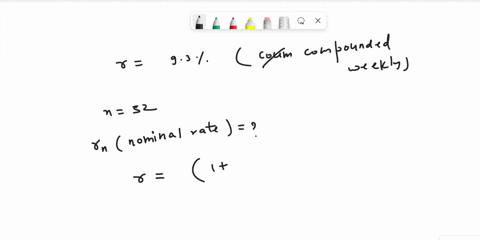 r = 9.3% ( compounded
weekly)
n = 52
rn ( nominal rate ) = ?
r = ( 1+